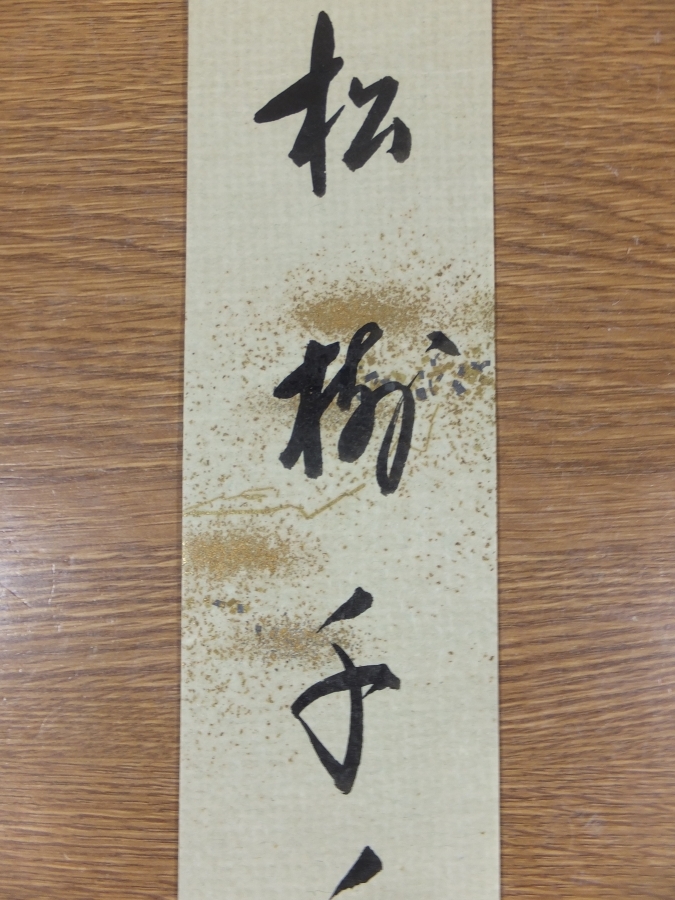 松樹千